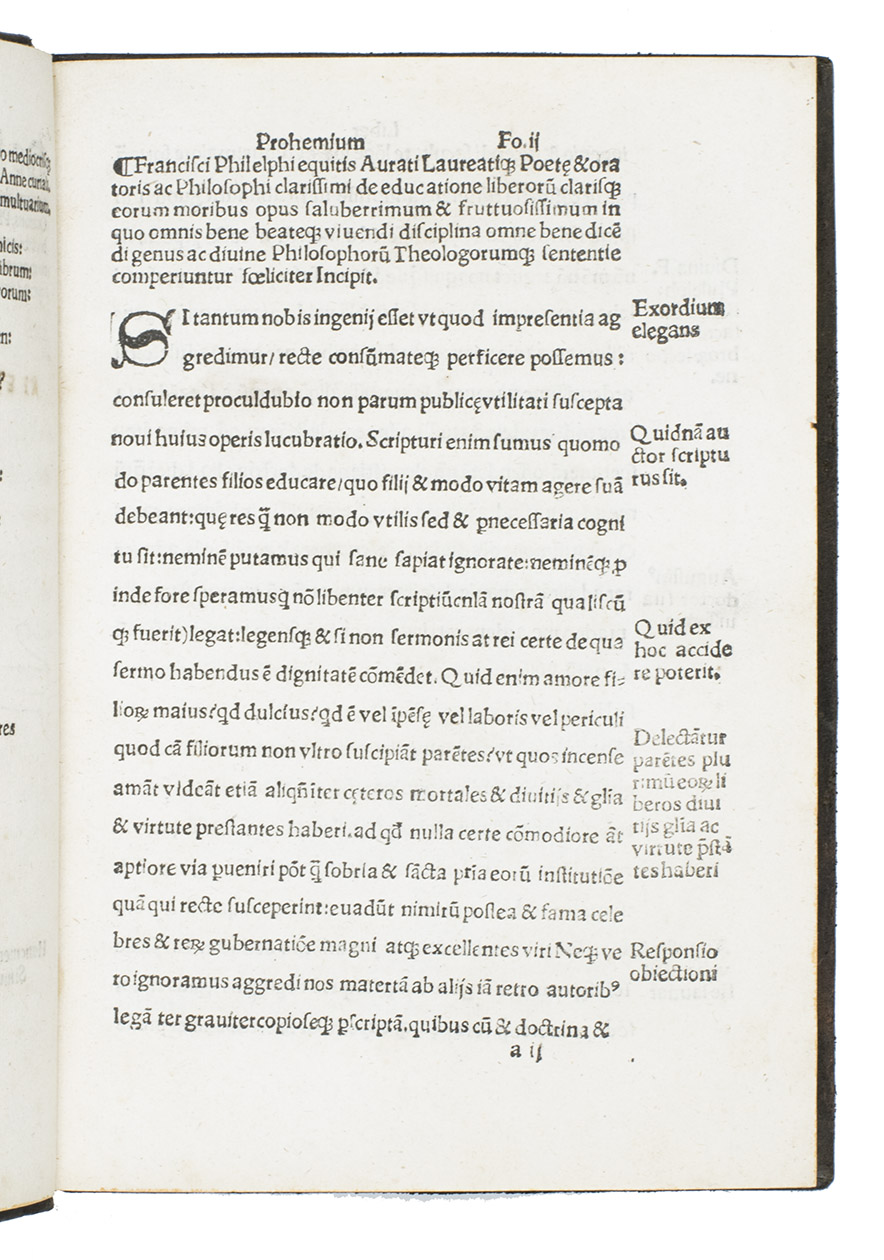 o mediocriſq̃
Anne curial,
multuarium,
nicis:
ibrum:
orum:
n:
?
res
Prohemium Fo.ij
¶Franciſci Philelphi equitis Aurati Laureatiq; Poetę & ora
toris ac Philoſophi clariſſimi de educatione liberorũ clariſq;
eorum moribus opus ſaluberrimum & fruttuoſiſſimum in
quo omnis bene beateq; viuendi diſciplina omne bene dicẽ
di genus ac diuine Philoſophorũ Theologorumq; ſententie
comperiuntur fœliciter Incipit.
SI tantum nobis ingenij eſſet vt quod impreſentia ag
gredimur/ recte conſũmateq; perficere poſſemus:
conſuleret proculdubio non parum publicę vtilitati ſuſcepta
noui huius operis lucubratio. Scripturi enim ſumus quomo
do parentes filios educare/quo filij & modo vitam agere ſuã
debeant:quę res q̃ non modo vtilis ſed & ꝑneceſſaria cogni
tu ſit:neminẽ putamus qui ſane ſapiat ignorate:neminẽq; ꝓ
inde fore ſperamus q̇ nõ libenter ſcriptiũcnlã noſtrã qualiſcũ
q; fuerit)legat:legenſq; & ſi non ſermonis at rei certe de qua
ſermo habendus ẽ dignitatẽ cõmẽdet. Quid enim amore fi⸗
lioꝝ maius?qd dulcius?qd ẽ vel ĩpẽſę vel laboris vel periculi
quod cã filiorum non vltro ſuſcipiãt parẽtes?vt quos incenſe
amãt videãt etiã aliqñ iter cęteros mortales & diuitijs & glia
& virtute preſtantes haberi.ad qd̃ nulla certe cõmodiore ãt
aptiore via ꝑueniri põt q̃ ſobria & ſãcta pria eorũ inſtitutiõe
quã qui recte ſuſceperint:euadũt nimirũ poſtea & fama cele
bres & reꝝ gubernatiõe magni atq; excellentes viri Neq; ve
ro ignoramus aggredi nos materiã ab alijs iã retro autoribꝰ
legã ter grauiter copioſeq; ꝑſcriptã.quibus cũ & doctrina &
a ij
Exordium
elegans
Quidnã au
ctor ſcriptu
rus ſit.
Quid ex
hoc accide
re poterit.
Delectãtur
parẽtes plu
rimũ eoꝝ li
beros diui
tijs glia ac
virtute p̃ſtã
tes haberi
Reſponſio
obiectioni